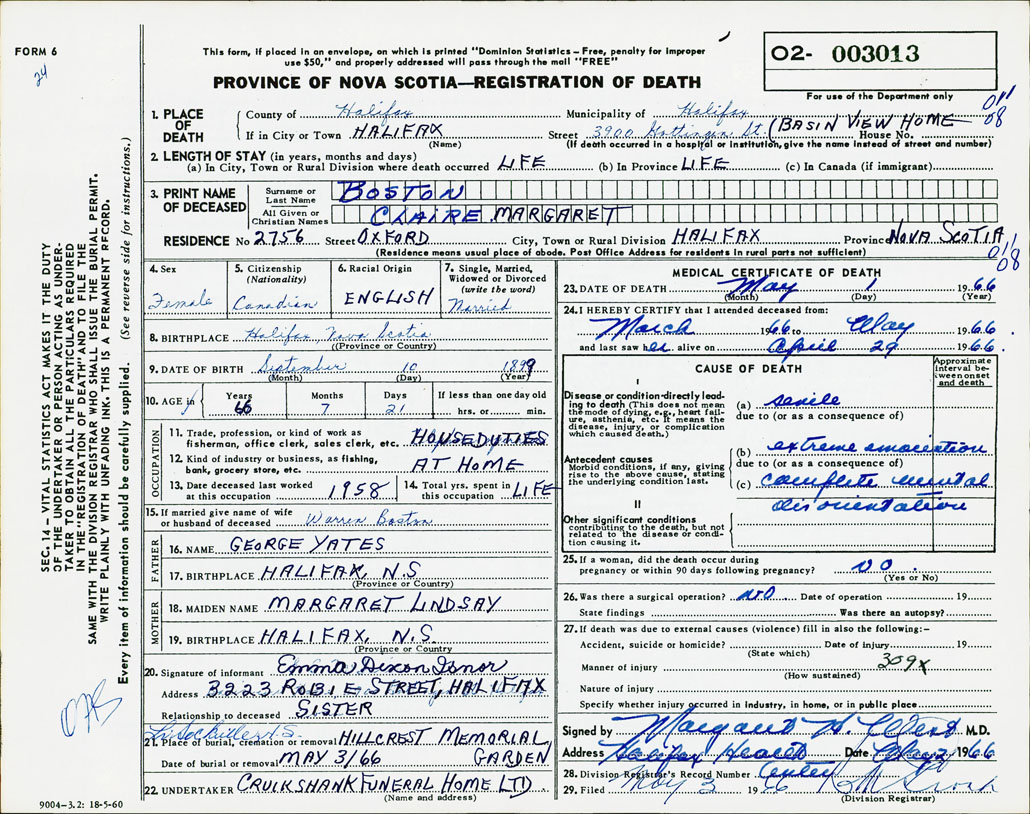 FORM 6
24
This form, if placed in an envelope, on which is printed "Dominion Statistics – Free, penalty for improper
use $50," and properly addressed will pass through the mail "FREE"
O2- 003013
For use of the Department only
PROVINCE OF NOVA SCOTIA—REGISTRATION OF DEATH
011
08
1. PLACE OF DEATH
County of Halifax Municipality of Halifax
If in City or Town HALIFAX Street 3900 Gottingen St. (BASIN VIEW HOME House No.
(Name) (If death occurred in a hospital or institution, give the name instead of street and number)
2. LENGTH OF STAY (in years, months and days)
(a) In City, Town or Rural Division where death occurred LIFE (b) In Province LIFE (c) In Canada (if immigrant)
3. PRINT NAME OF DECEASED
Surname or Last Name BOSTON
All Given or Christian Names CLAIRE MARGARET
RESIDENCE No 2756 Street OXFORD City, Town or Rural Division HALIFAX Province NOVA SCOTIA
(Residence means usual place of abode. Post Office Address for residents in rural parts not sufficient)
011
08
4. Sex Female
5. Citizenship (Nationality) Canadian
6. Racial Origin ENGLISH
7. Single, Married, Widowed or Divorced (write the word) Married
8. BIRTHPLACE Halifax, Nova Scotia
(Province or Country)
9. DATE OF BIRTH September 10 1899
(Month) (Day) (Year)
10. AGE in Years 66 Months 7 Days 21 If less than one day old hrs. or min.
OCCUPATION
11. Trade, profession, or kind of work as
fisherman, office clerk, sales clerk, etc. HOUSEDUTIES
12. Kind of industry or business, as fishing,
bank, grocery store, etc. AT HOME
13. Date deceased last worked
at this occupation 1958
14. Total yrs. spent in
this occupation LIFE
15. If married give name of wife
or husband of deceased Warren Boston
FATHER
16. NAME GEORGE YATES
17. BIRTHPLACE HALIFAX, N.S
(Province or Country)
MOTHER
18. MAIDEN NAME MARGARET LINDSAY
19. BIRTHPLACE HALIFAX, N.S.
(Province or Country)
20. Signature of informant Emma Dixon Isnor
Address 3223 ROBIE STREET, HALIFAX
Relationship to deceased SISTER
21. Place of burial, cremation or removal HILLCREST MEMORIAL
Date of burial or removal MAY 3/66 GARDEN
22. UNDERTAKER CRUIKSHANK FUNERAL HOME LTD.
(Name and address)
MEDICAL CERTIFICATE OF DEATH
23. DATE OF DEATH May 1 1966
(Month) (Day) (Year)
24. I HEREBY CERTIFY that I attended deceased from:
March 1966 to May 1966.
and last saw her alive on April 29 1966.
CAUSE OF DEATH
Approximate interval between onset and death
I
Disease or condition directly leading to death (This does not mean the mode of dying, e.g., heart failure, asthenia, etc. It means the disease, injury, or complication which caused death.)
(a) senile
due to (or as a consequence of)
Antecedent causes
Morbid conditions, if any, giving rise to the above cause, stating the underlying condition last.
(b) extreme emaciation
due to (or as a consequence of)
(c) complete mental
disorientation
II
Other significant conditions
contributing to the death, but not related to the disease or condition causing it.
25. If a woman, did the death occur during
pregnancy or within 90 days following pregnancy? no
(Yes or No)
26. Was there a surgical operation? no Date of operation 19
State findings Was there an autopsy?
27. If death was due to external causes (violence) fill in also the following:–
Accident, suicide or homicide? Date of injury 19
(State which)
Manner of injury 309x
(How sustained)
Nature of injury
Specify whether injury occurred in industry, in home, or in public place
Signed by Margaret M.D.
Address Halifax Health Date May 2 1966
28. Division Registrar's Record Number Center
29. Filed May 3 1966
(Division Registrar)
SEC. 14 – VITAL STATISTICS ACT MAKES IT THE DUTY
OF THE UNDERTAKER OR PERSON ACTING AS UNDER-
TAKER TO OBTAIN ALL THE PARTICULARS REQUIRED
IN THE "REGISTRATION OF DEATH" AND TO FILE THE
SAME WITH THE DIVISION REGISTRAR WHO SHALL ISSUE THE BURIAL PERMIT.
WRITE PLAINLY WITH UNFADING INK. THIS IS A PERMANENT RECORD.
Every item of information should be carefully supplied. (See reverse side for instructions.)
9004–3.2: 18-5-60